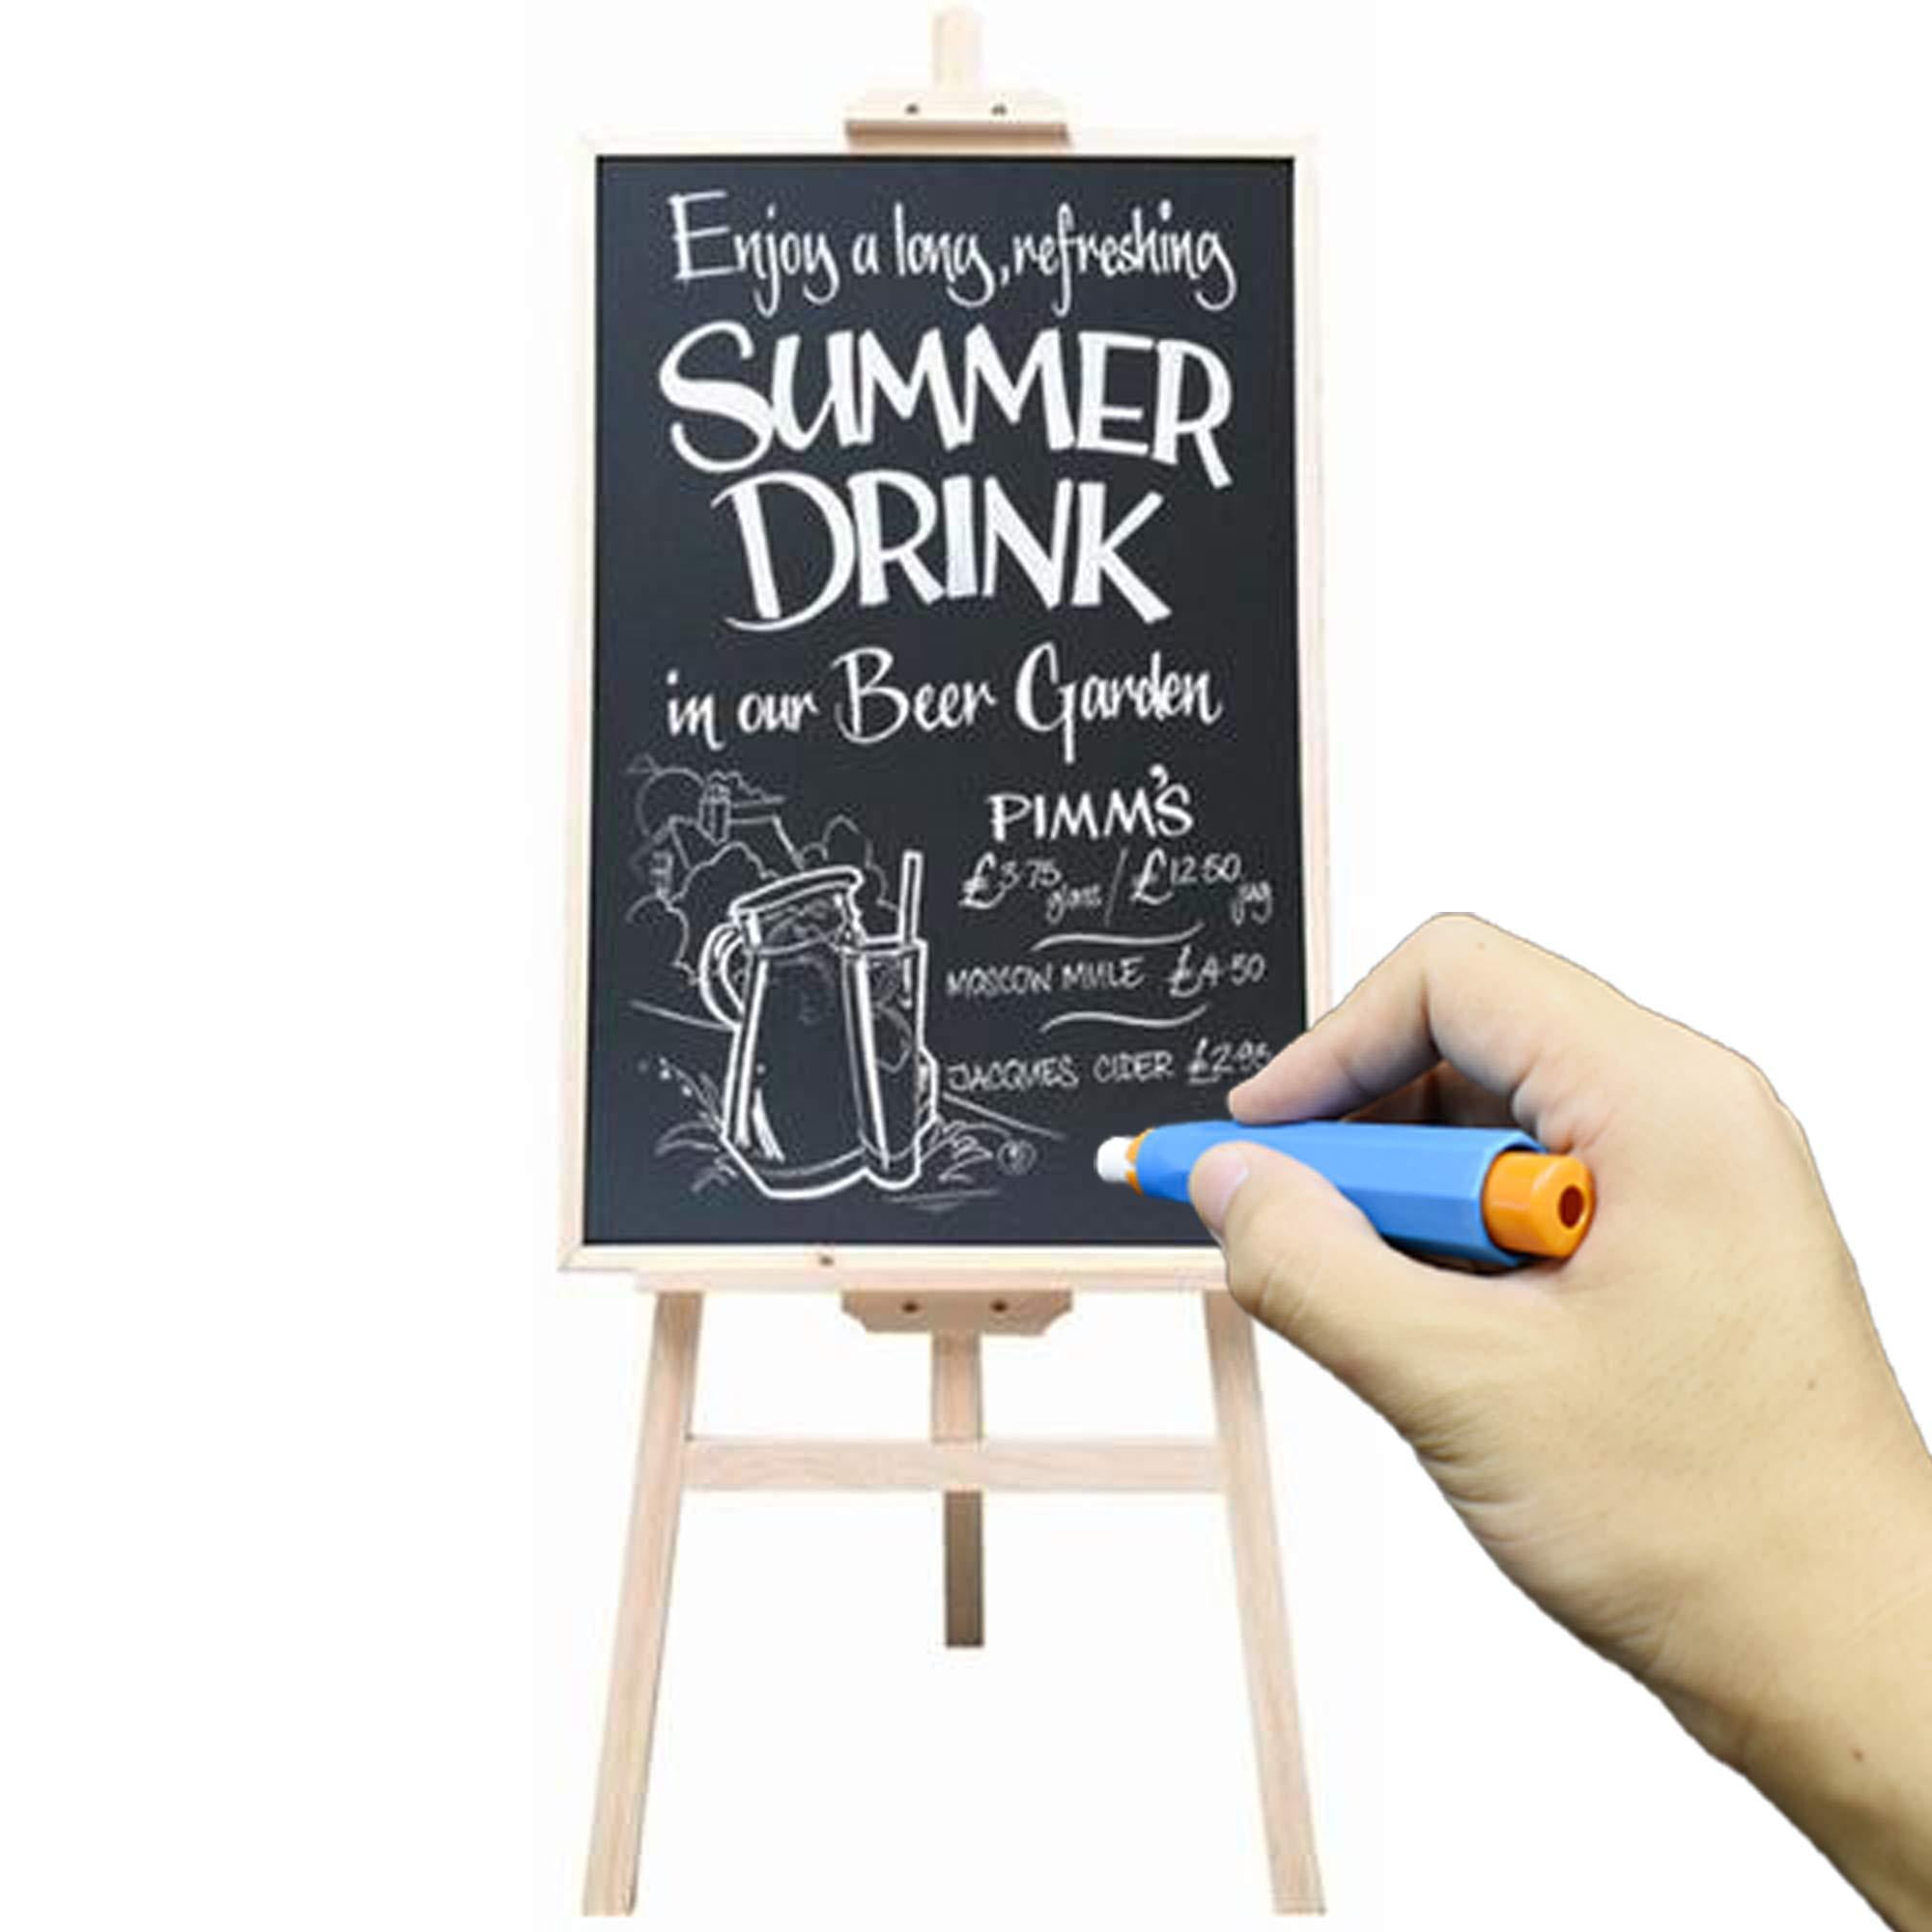 Enjoy a long, refreshing
SUMMER
DRINK
in our Beer Garden
PIMM'S
£3.75 glass / £12.50 jug
MOSCOW MULE £4.50
JACQUES CIDER £2.95